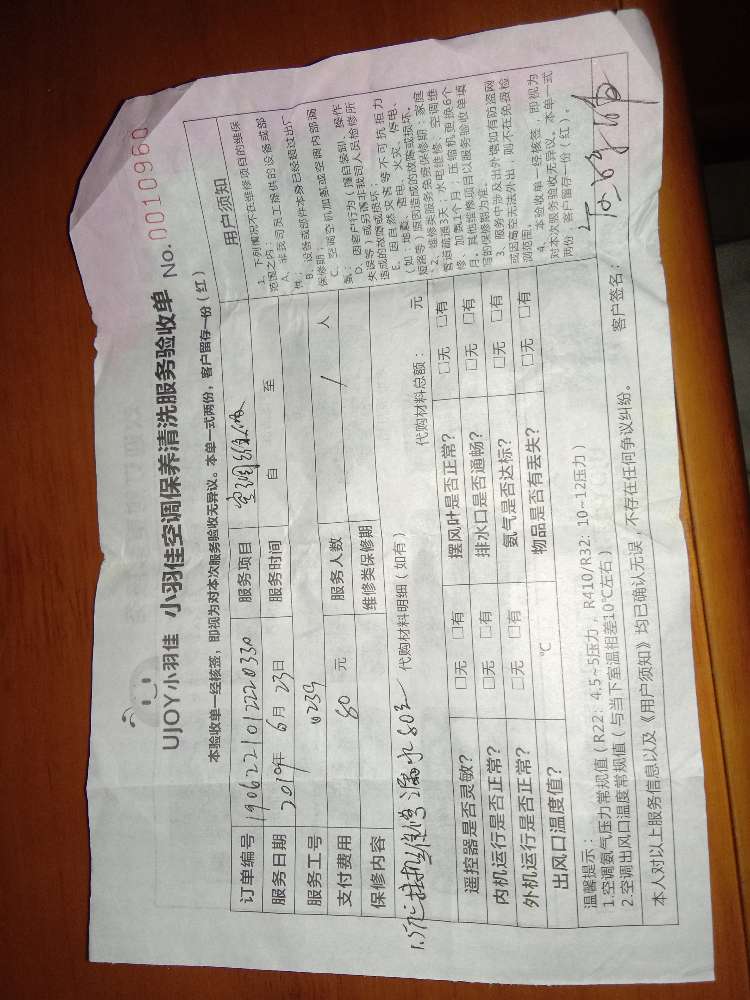 UJOY小羽佳 小羽佳空调保养清洗服务验收单 No. 0010960
本验收单一经核签，即视为对本次服务验收无异议。本单一式两份，客户留存一份（红）
订单编号 1906221012220330 服务项目 空调维修
服务日期 2019年 6月 23日 服务时间 自 至
服务工号 0239
支付费用 80 元 服务人数 1 人
保修内容 维修类保修期
代购材料明细（如有） 代购材料总额： 元
1.5匹挂机维修漏水80元
遥控器是否灵敏？ □无 □有 摆风叶是否正常？ □无 □有
内机运行是否正常？ □无 □有 排水口是否通畅？ □无 □有
外机运行是否正常？ □无 □有 氨气是否达标？ □无 □有
出风口温度值？ ℃ 物品是否有丢失？ □无 □有
用户须知
1、下列情况不在维修项目的维保
范围之内：
A、非我司员工提供的设备或部
件；
B、设备或部件本身已经超过出厂
保修期；
C、空调空机加氨或空调内部漏
氨；
D、因客户行为（擅自装卸、操作
失误等）或另请非我司人员检修所
造成的故障或损坏；
E、因自然灾害等不可抗拒力
（如：地震、雷电、火灾、停电、
短路等）原因造成的故障或损坏。
2、维修类服务免费保修期：家庭
管道疏通3天；水电维修、空调维
修、加氨1个月；压缩机更换6个
月。其他维修项目以服务验收单填
写的保修期为准。
3、服务中涉及出外墙如有防盗网
或因高空无法外出，则不在免费检
测范围。
4、本验收单一经核签，即视为
对本次服务验收无异议。本单一式
两份，客户留存一份（红）。
温馨提示：
1.空调氨气压力常规值（R22：4.5~5压力，R410/R32：10-12压力）
2.空调出风口温度常规值（与当下室温相差10℃左右）
本人对以上服务信息以及《用户须知》均已确认无误，不存在任何争议纠纷。 客户签名：